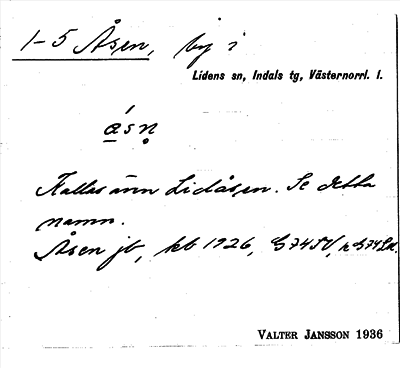 1-5 Åsen, by i
Lidens sn, Indals tg, Västernorrl. l.
åsn̥
Kallas även Lidåsen. Se detta
namn.
Åsen jb, kb 1926, G 74 SV,
VALTER JANSSON 1936